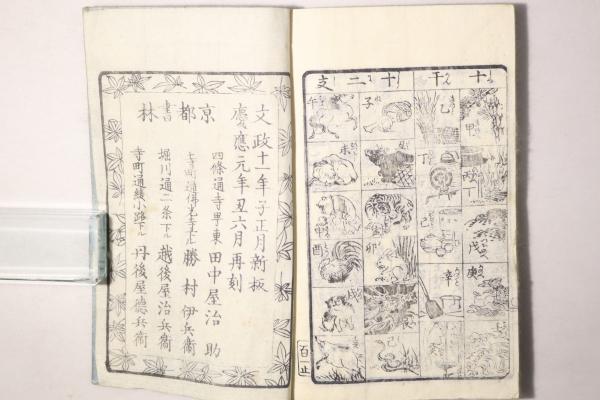 十干十二支
甲
乙
丁
戊
己
庚
辛
子
卯
辰
巳
午
未
申
酉
戌
百止
文政十一年子正月新板
慶應元年丑六月再刻
京都書林
四條通寺町東
田中屋治助
勝村伊兵衛
堀川通二条下ル
越後屋治兵衛
寺町通綾小路下ル
丹後屋德兵衛